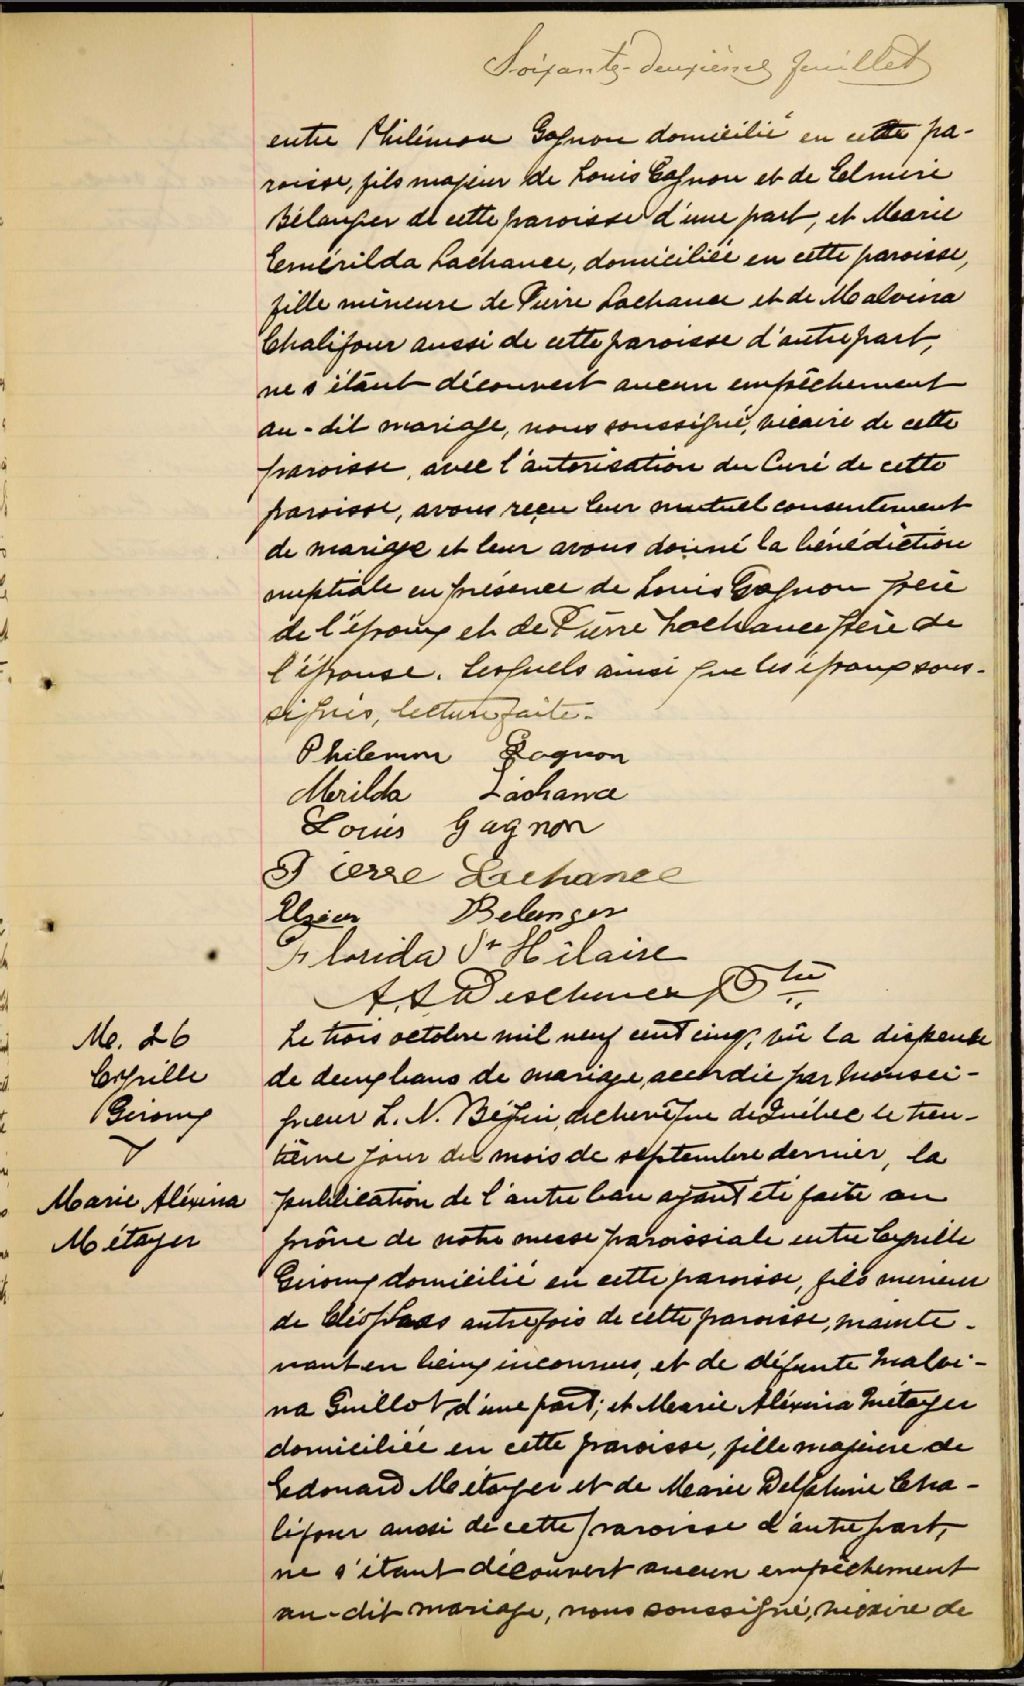 Soixante-deuxième feuillet
entre Philémon Gagnon domicilié en cette pa-
roisse, fils majeur de Louis Gagnon et de Elmire
Bélanger de cette paroisse d'une part, et Marie
Emérilda Lachance, domiciliée en cette paroisse,
fille mineure de Pierre Lachance et de Malvina
Chalifour aussi de cette paroisse d'autre part,
ne s'étant découvert aucun empêchement
au-dit mariage, nous soussigné, vicaire de cette
paroisse, avec l'autorisation du Curé de cette
paroisse, avons reçu leur mutuel consentement
de mariage et leur avons donné la bénédiction
nuptiale en présence de Louis Gagnon père
de l'époux et de Pierre Lachance père de
l'épouse. Lesquels ainsi que les époux sous-
signés, lecture faite.
Philemon Gagnon
Merilda Lachance
Louis Gagnon
Pierre Lachance
Elzear Belanger
Florida St Hilaire
A. A. Deschenes Ptre
M. 26
Cyrille
Giroux
Marie Aléxina
Métayer
Le trois octobre mil neuf cent cinq, vû la dispense
de deux bans de mariage, accordée par Monsei-
gneur L. N. Bégin, archevêque de Québec le tren-
tième jour du mois de septembre dernier, la
publication de l'autre ban ayant été faite au
prône de notre messe paroissiale entre Cyrille
Giroux domicilié en cette paroisse, fils mineur
de Cléophas autrefois de cette paroisse, mainte-
nant en lieux inconnus, et de défunte Malvi-
na Guillot d'une part; et Marie Aléxina Métayer
domiciliée en cette paroisse, fille majeure de
Edouard Métayer et de Marie Delphine Cha-
lifour aussi de cette paroisse d'autre part,
ne s'étant découvert aucun empêchement
au-dit mariage, nous soussigné, vicaire de